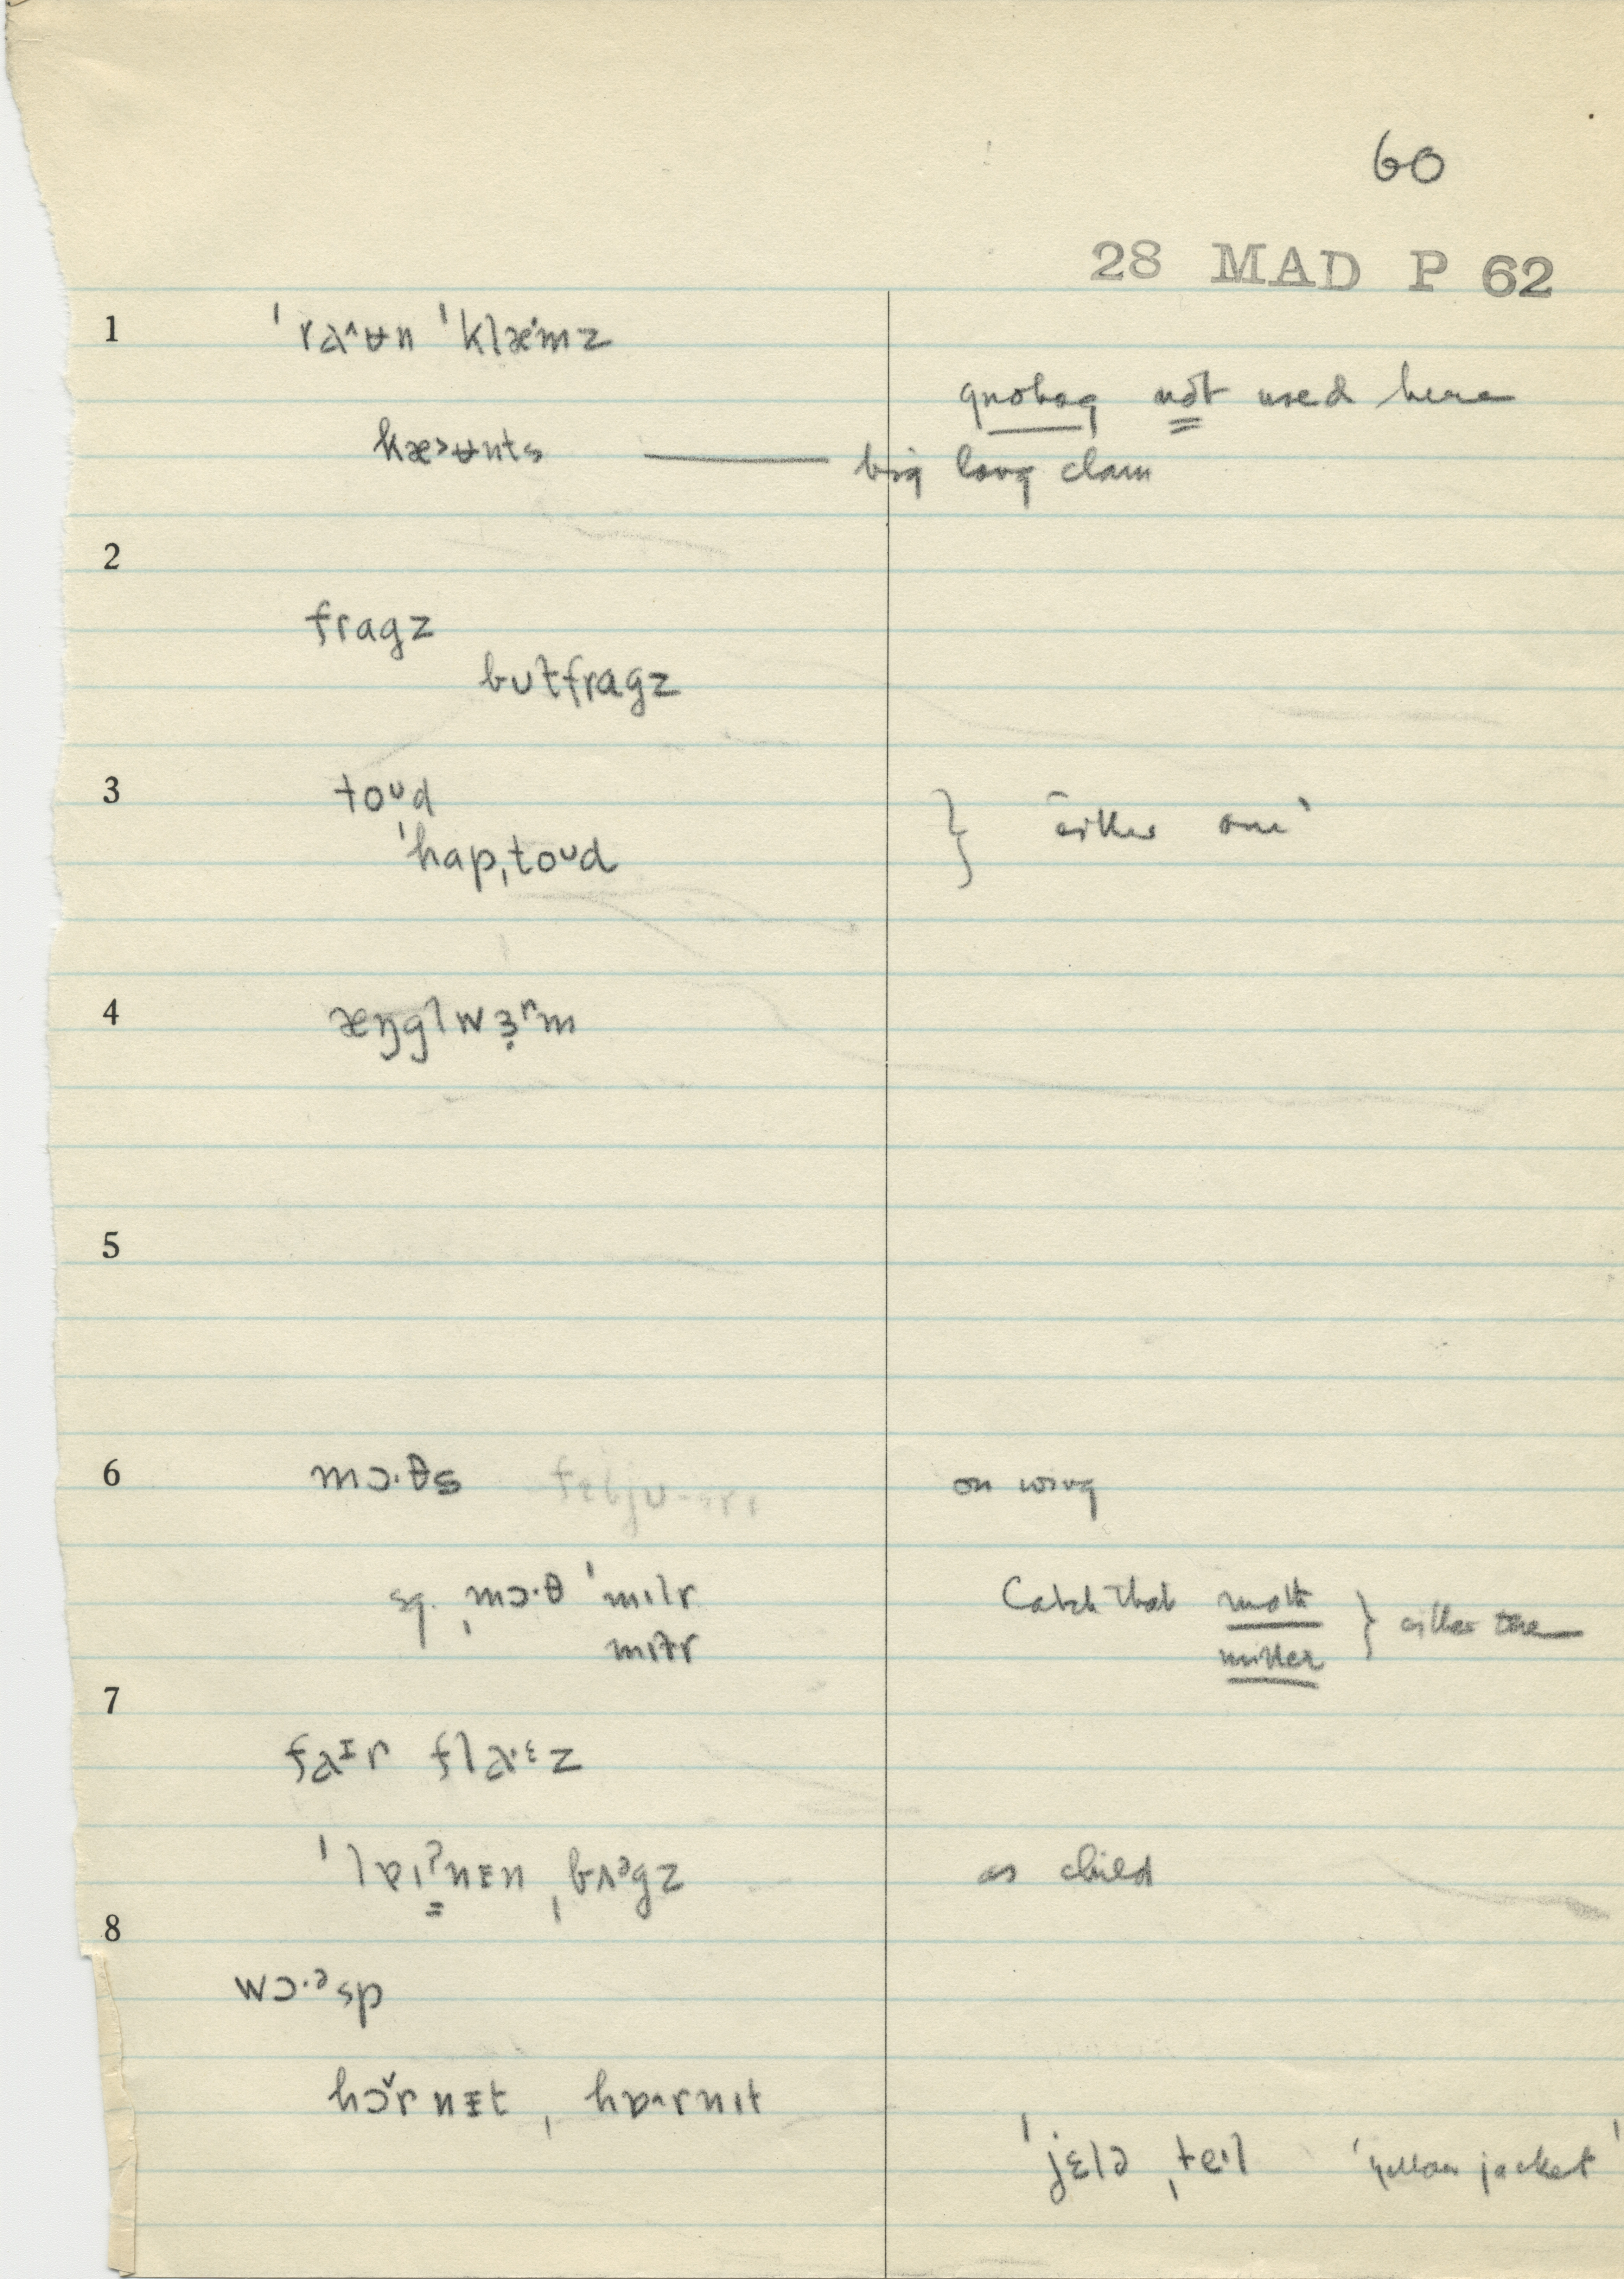 60
28 MAD P 62
1 ˈraˆʉn ˈklæˑmz
quohog not used here
kæ˃ʉnts — big long clam
2
fragz
buɫfragz
3 toᴜd
ˈhapˌtoᴜd } either one
4 æŋglwɜ̣ʳm
5
6 mɔ·θs on wing
sg. ˌmɔ·θ ˈmɪlr Catch that moth } either one
mɪɫr miller
7
faᶦr fla·ᵋz
ˈlɐɪˀnɪn ˌbʌᵊgz as child
8
wɔ·ᵊsp
hɔ˅rnɪt, hɒ^rnɪt
ˈjɛlə ˌteɪl 'yellow jacket'